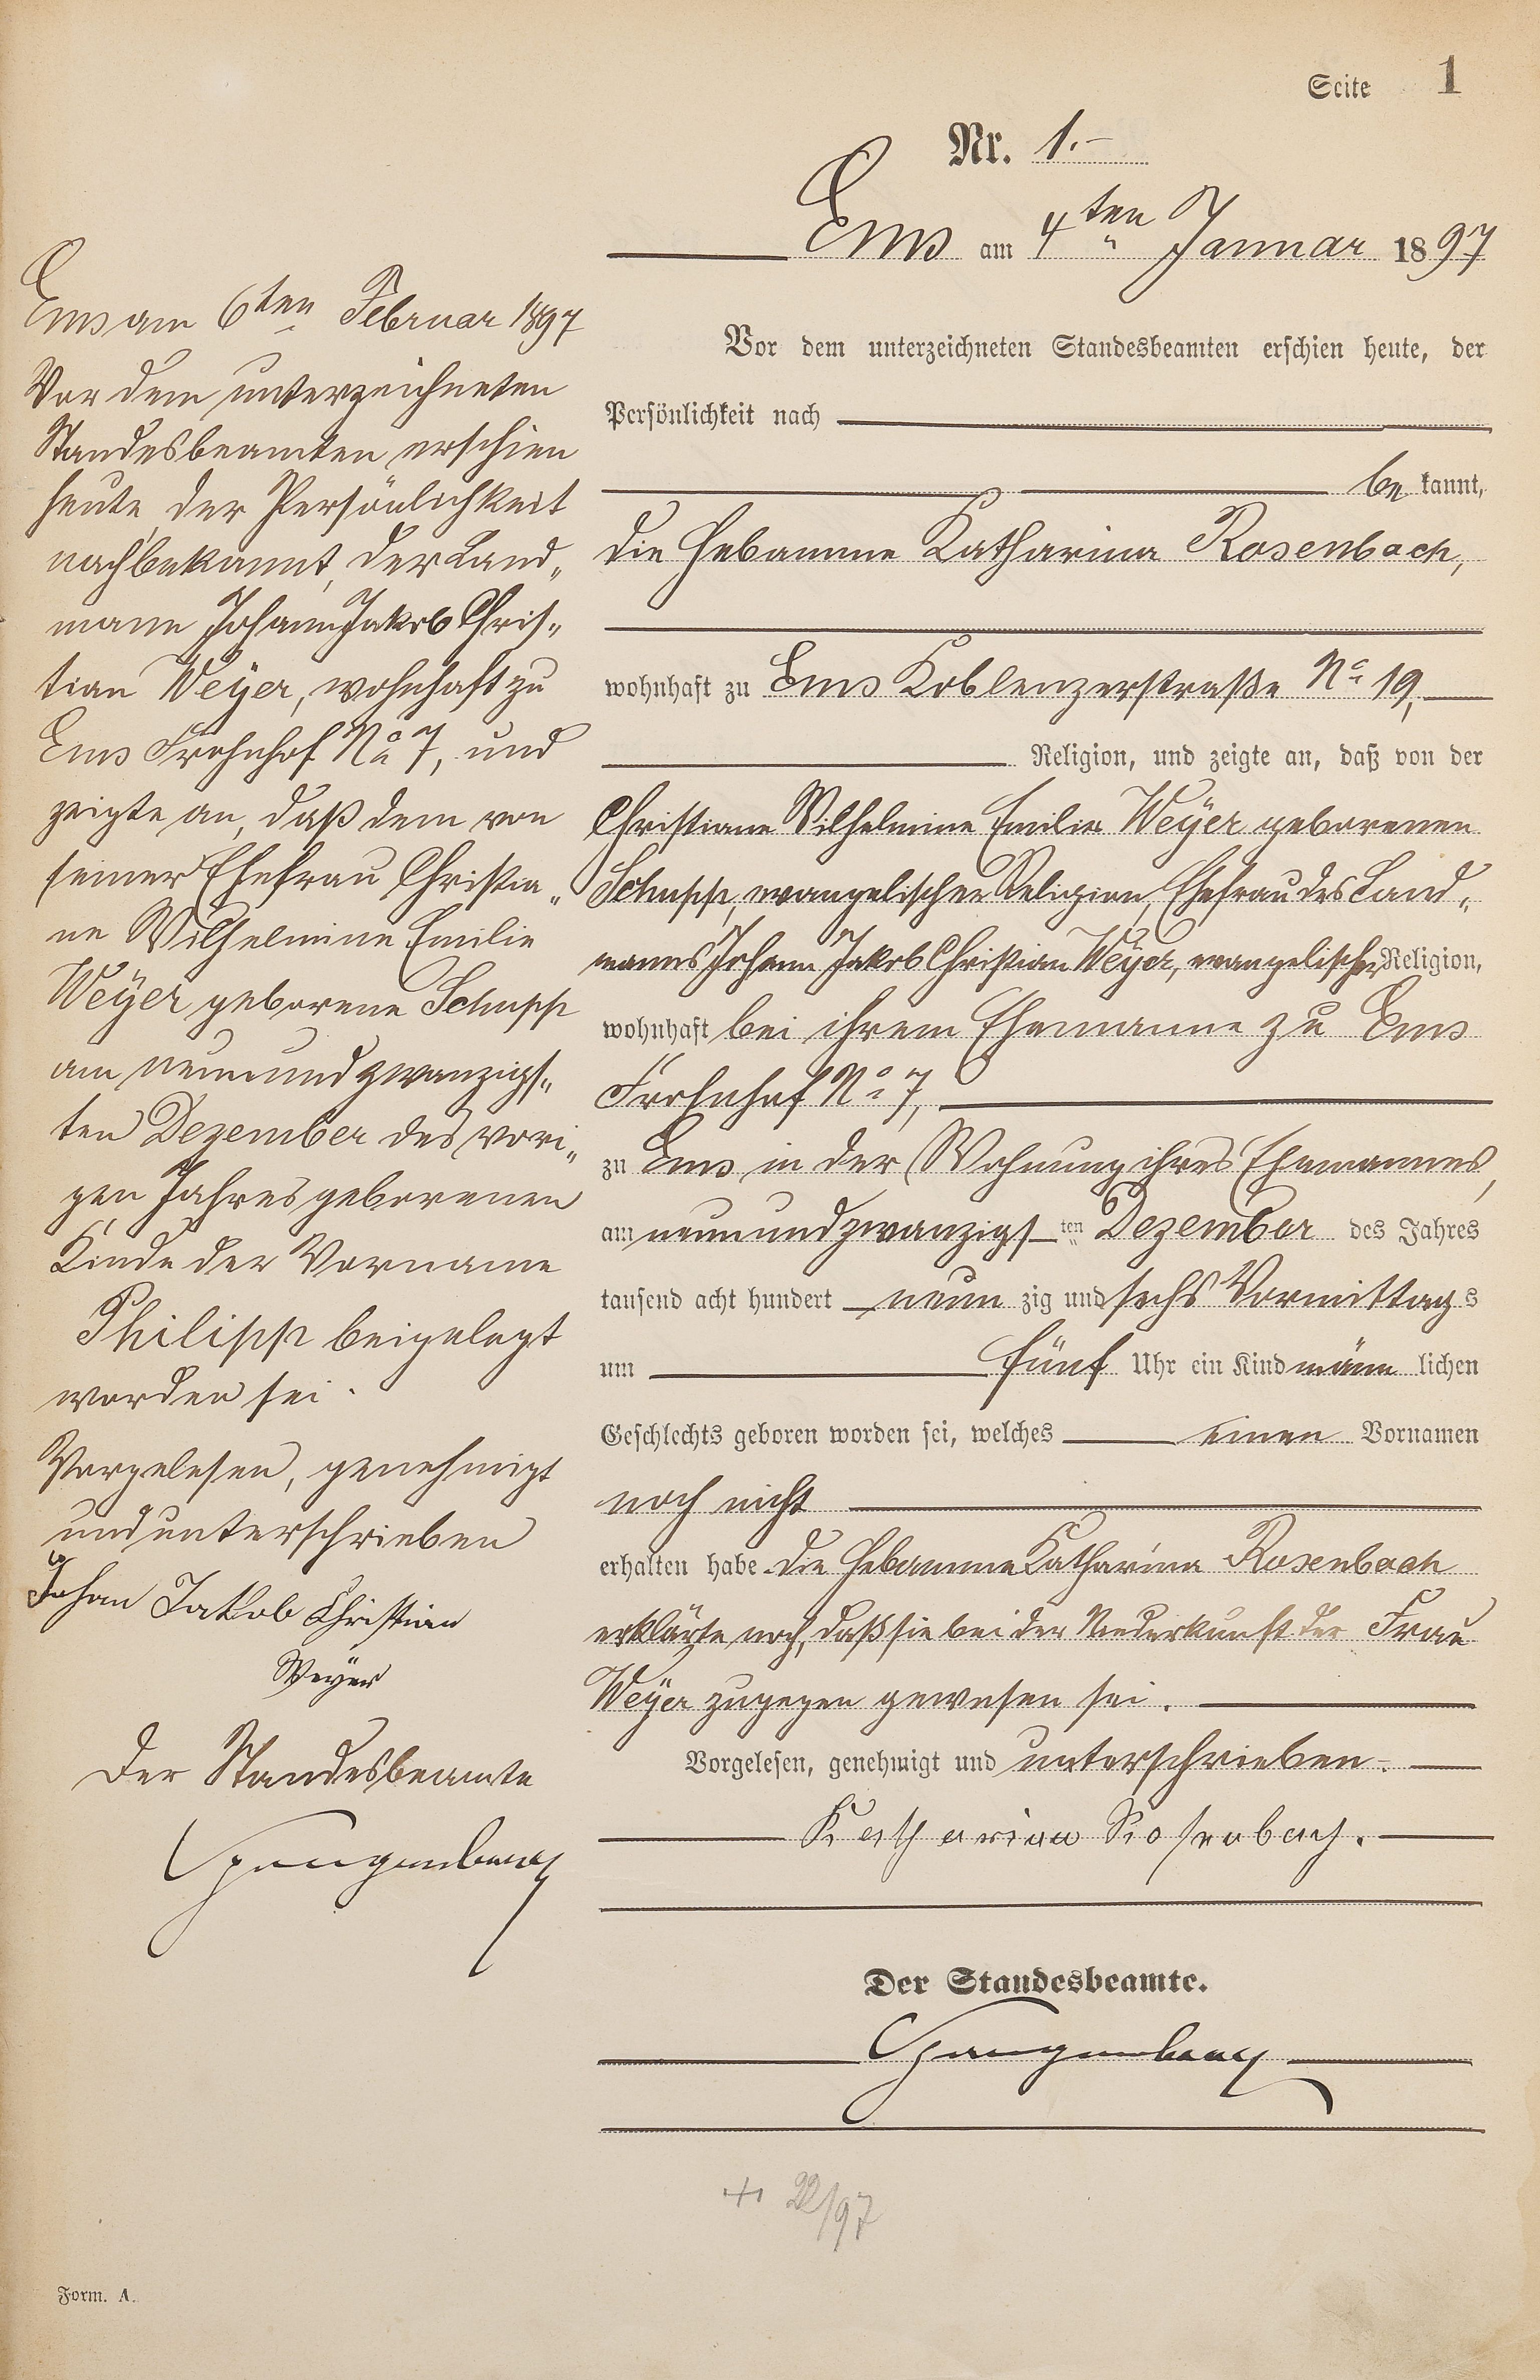 Seite 1
Nr. 1.-
Ems am 4ten Januar 1897
Vor dem unterzeichneten Standesbeamten erschien heute, der
Persönlichkeit nach
be kannt,
die Hebamme Katharina Rosenbach,
wohnhaft zu Ems Koblenzerstraße No 19,
Religion, und zeigte an, daß von der
Christiane Wilhelmine Emilie Weÿer geborenen
Schupp, evangelischer Religion, Ehefrau des Land„
manns Johann Jakob Christian Weÿer, evangelischer Religion,
wohnhaft bei ihrem Ehemanne zu Ems
Frohnhof No 7,
zu Ems in der Wohnung ihres Ehemannes,
am neunundzwanzigs ten Dezember des Jahres
tausend acht hundert neun zig und sechs Vormittags
um fünf Uhr ein Kind männ lichen
Geschlechts geboren worden sei, welches einen Vornamen
noch nicht
erhalten habe. Die Hebamme Katharina Rosenbach
erklärte noch, daß sie bei der Niederkunft der Frau
Weÿer zugegen gewesen sei.
Vorgelesen, genehmigt und unterschrieben.-
Katharina Rosenbach.
Der Standesbeamte.
Spangenberg
+ 22/97
Ems am 6ten Februar 1897
Vor dem unterzeichneten
Standesbeamten erschien
heute, der Persönlichkeit
nach bekannt, der Land„
mann Johann Jakob Chris„
tian Weÿer, wohnhaft zu
Ems Frohnhof No 7, und
zeigte an, daß dem von
seiner Ehefrau Christia„
ne Wilhelmine Emilie
Weÿer geborene Schupp
am neunundzwanzigs„
ten Dezember des vori„
gen Jahres geborenen
Kinde der Vorname
Philipp beigelegt
worden sei.
Vorgelesen, genehmigt
und unterschrieben
Johan Jakob Christian
Weÿer
Der Standesbeamte
Spangenberg
Form. A.